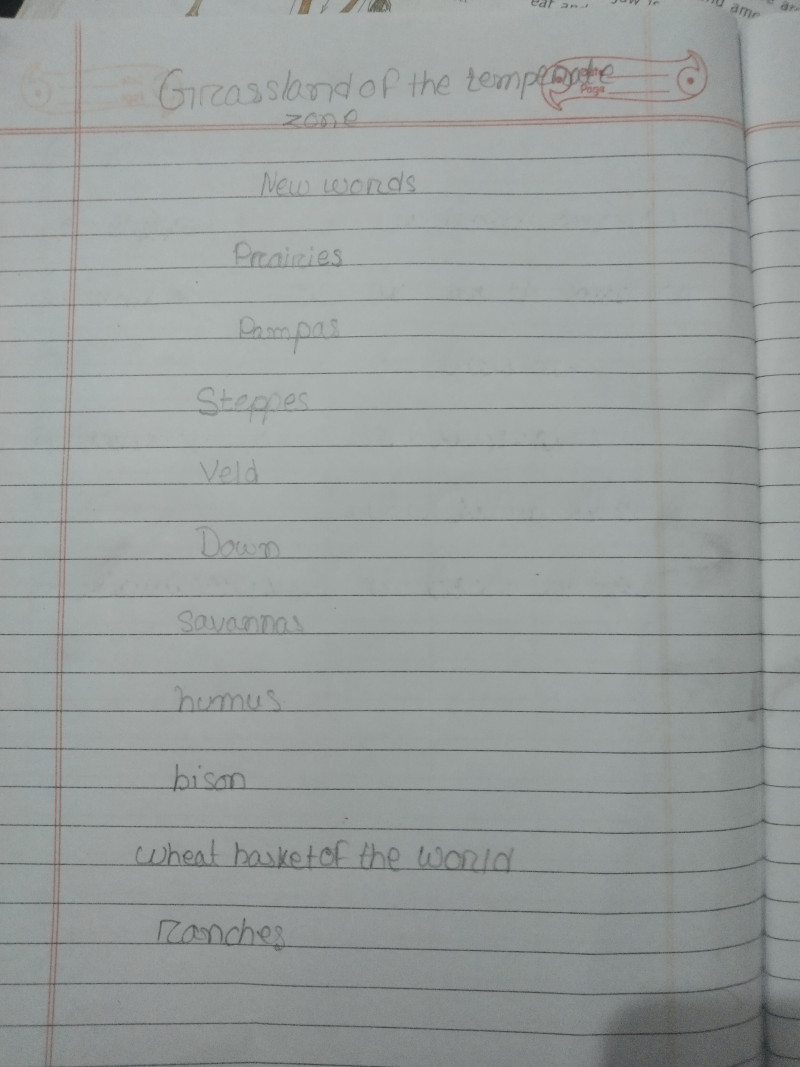 Grassland of the temperate
zone
Page
New words
Prairies
Pampas
Steppes
Veld
Down
savannas
humus
bison
wheat basket of the world
Ranches